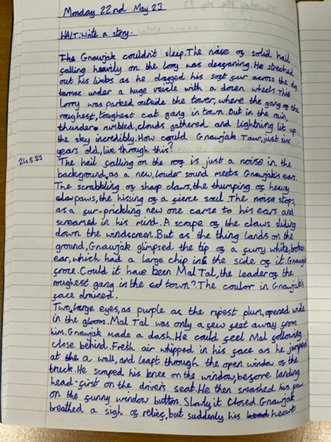 Monday 22nd May 23.
HALT: Write a story.
The Gnawjak couldn't sleep. The noise of solid hail
falling heavily on the lorry was deafening. He streched
out his limbs as he dragged his soft fur across the dry
tarmac under a huge veicle with a dozen wheels. This
lorry was parked outside the tower, where the gang of the
roughest, toughest cat gang in town. But in the rain,
thunder rumbled, clouds gathered and lightning lit up
the sky incredibly. How could Gnawjak Taur, just six
years old, live through this?
24.5.23
The hail falling on the roof is just a noise in the
background, as a new, louder sound meets Gnawjak's ears.
The scrabbling of sharp claws, the thumping of heavy
paws, the hissing of a fierce soul. The noise stops,
as a fur-prickling new one came to his ears and
screamed in his mind. A scrape of the claws sliding
down the windscreen. But as the thing lands on the
ground, Gnawjak glimpsed the tip of a furry white, broken
ear, which had a large chip in the side of it. Gnawjak
froze. Could it have been Mal Tal, the leader of the
roughest gang in the town? The coulor in Gnawjak's
face drained.
Two, large eyes, as purple as the ripest plum, opened wide
in the gloom. Mal Tal was only a few feet away from
him. Gnawjak made a dash. He could feel Mal following
close behind. Fresh air whipped in his face as he jumped
at a wall, and leapt through the open window of the
truck. He scraped his knee on the window, before landing
head-first on the drivers seat. He then smashed his paw
on the funny window button. Slowly it closed. Gnawjak
breathed a sigh of relief, but suddenly his heart